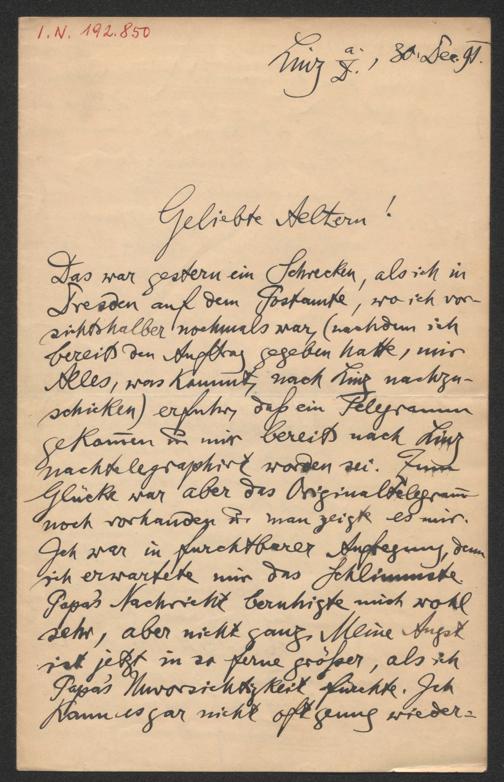 I.N. 192.850
Linz a. D., 30. Dec. 91.
Geliebte Aeltern!
Das war gestern ein Schrecken, als ich in
Dresden auf dem Postamte, wo ich vor-
sichtshalber nochmals war, (nachdem ich
bereits den Auftrag gegeben hatte, mir
Alles, was kommt, nach Linz nachzu-
schicken) erfuhr, daß ein Telegramm
gekom̅en u. mir bereits nach Linz
nachtelegraphirt worden sei. Zum
Glücke war aber das Originaltelegram̅
noch vorhanden u. man zeigte es mir.
Ich war in furchtbarer Aufregung, denn
ich erwartete mir das Schlimmste.
Papa's Nachricht beruhigte mich wohl
sehr, aber nicht ganz. Meine Angst
ist jetzt in so ferne größer, als ich
Papa's Unvorsichtigkeit fürchte. Ich
kann es gar nicht oft genug wieder=